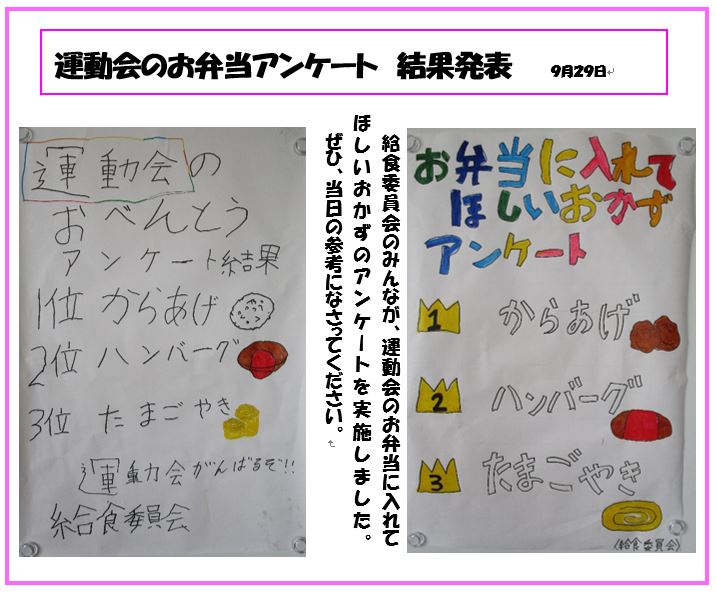 運動会のお弁当アンケート 結果発表 9月29日
運動会の
おべんとう
アンケート結果
1位 からあげ
2位 ハンバーグ
3位 たまごやき
運動会がんばるぞ!!
給食委員会
給食委員会のみんなが、運動会のお弁当に入れて
ほしいおかずのアンケートを実施しました。
ぜひ、当日の参考になさってください。
お弁当に入れて
ほしいおかず
アンケート
1 からあげ
2 ハンバーグ
3 たまごやき
(給食委員会)